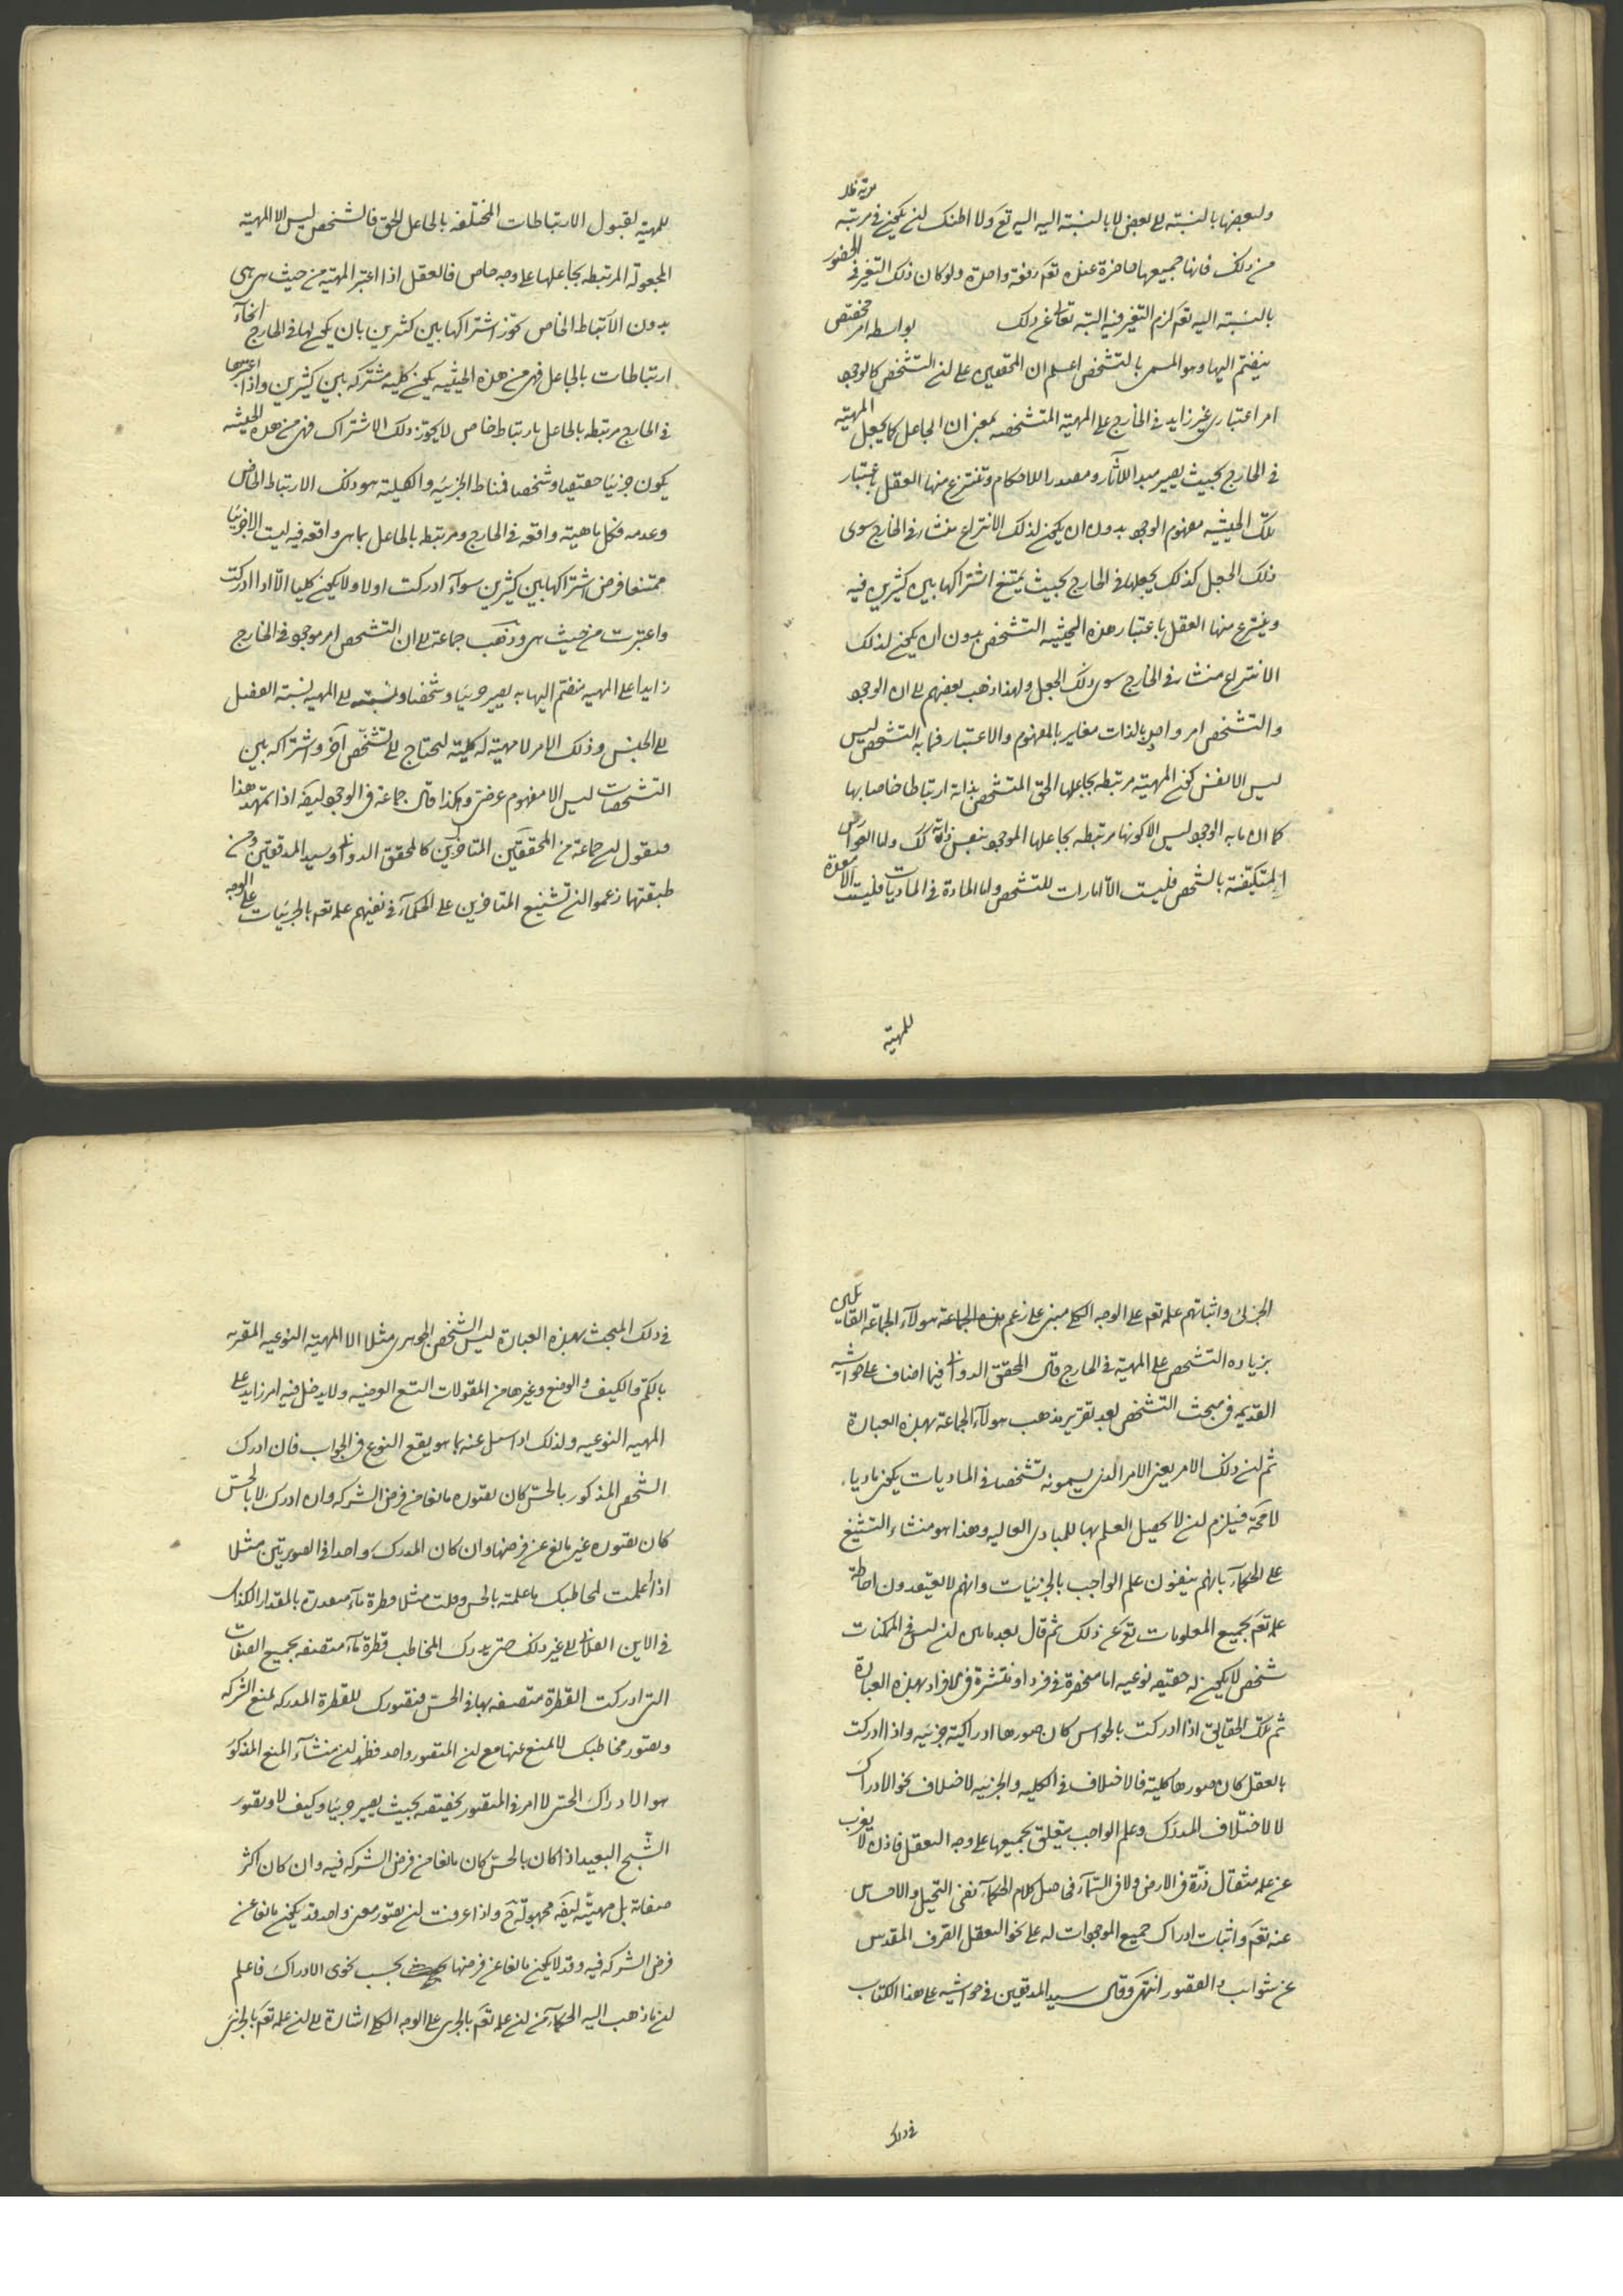 مرتبة ظ
ولبعضها بالنسبة لے بعض لا بالنسبة اليه اليه تع ولا اظنك لن يكون فى مرتبة
من ذلك فانها جميعها حاضرة عنده تع دفعة واحدة ولو كان ذلك التغير فى الحضور
بالنسبة اليه تع لزم التغير فيه البتة تعالى عن ذلك بواسطة امر مختص
ينضم اليها وهو المسمى بالتشخص اعلم ان المحققين على لن التشخص كالوجود
امر اعتبارى غير زايد فى الخارج على المهية المتشخصة بمعنى ان الجاعل كما يجعل المهية
فى الخارج بحيث يصير مبدا للآثار ومصدرا للاحكام وتنتزع منها العقل باعتبار
تلك الحيثية مفهوم الوجود بدون ان يكون لذلك الانتزاع منشاء فى الخارج سوى
ذلك الجعل كذلك يجعلها فى الخارج بحيث يمتنع اشتراكها بين كثيرين فيه
وينتزع منها العقل باعتبار هذه الحيثية التشخص بدون ان يكون لذلك
الانتزاع منشاء فى الخارج سوى ذلك الجعل ولهذا ذهب بعضهم لے ان الوجود
والتشخص امر واحد بالذات مغاير بالمفهوم والاعتبار فما به التشخص ليس
ليس الا نفس كون المهية مرتبطة بجاعلها الحق المتشخص بذاته ارتباطا خاصا بها
كما ان ما به الوجود ليس الا كونها مرتبطة بجاعلها الموجود بنفس ذاته كك واما العوارض
المتكيفة بالشخص فليست الا امارات للتشخص واما المادة فى الماديات فليست الا معدة
للمهية
للمهية لقبول الارتباطات المختلفة بالجاعل الحق فالشخص ليس الا المهية
المجعولة المرتبطة بجاعلها على وجه خاص فالعقل اذا اعتبر المهية من حيث هى هى
بدون الارتباط الخاص جوّز اشتراكها بين كثيرين بان يكون لها فى الخارج انحآء
ارتباطات بالجاعل فهى من هذه الحيثية يكون كلية مشتركة بين كثيرين واذا اعتبرها
فى الخارج مرتبطة بالجاعل بارتباط خاص لا يجوز ذلك الاشتراك فهى من هذه الحيثية
يكون جزئيا حقيقيا وشخصا فمناط الجزئية والكلية هو ذلك الارتباط الخاص
وعدمه فكل ماهية واقعة فى الخارج ومرتبطة بالجاعل بما هى واقعة فيه ليست الا جزئيا
ممتنعا فرض اشتراكها بين كثيرين سوآء ادركت اولا ولا يكون كليا الّا اذا ادركت
واعتبرت من حيث هى وذهب جماعة لے ان التشخص امر موجود فى الخارج
زايدا على المهية منضم اليها به يصير جزئيا وشخصا ونسبته لے المهية نسبة الفصل
لے الجنس وذلك الامر لا مهية له كلية ليحتاج لے تشخّص آخر واشتراكه بين
التشخصات ليس الا مفهوم عرضى وهكذا قال جماعة فى الوجود ايضا اذا تمهد هذا
فنقول لن جماعة من المحققين المتاخرين كالمحقق الدوانى وسيد المدققين ومن
طبقتهما زعموا لن تشنيع المتاخرين على الحكمآء فى نفيهم علمه تع بالجزئيات على الوجه
الجزئى واثباتهم علمه تع على الوجه الكلى مبنى على زعم هذه الجماعة هولآء الجماعة القايلين
بزيادة التشخص على المهية فى الخارج قال المحقق الدوانى فيما اضاف على حواشيه
القديمة فى مبحث التشخص بعد تقرير مذهب هولآء الجماعة بهذه العبارة
ثم لن ذلك الامر يعنى الامر الذى يسمونه تشخصا فى الماديات يكون ماديا
لا محة فيلزم لن لا يحصل العلم بها للمبادى العالية وهذا هو منشاء التشنيع
على الحكمآء بانهم ينفون علم الواجب بالجزئيات وانهم لا يعتقدون احاطة
علمه تع بجميع المعلومات تع عن ذلك ثم قال بعد ما بين لن ليس فى الممكنات
شخص لا يكون له حقيقة نوعية اما منحصرة فى فرد او منتشرة فى افراد بهذه العبارة
ثم تلك الحقايق اذا ادركت بالحواس كان صورها ادراكية جزئية واذا ادركت
بالعقل كان صورها كلية فالاختلاف فى الكلية والجزئية لاختلاف نحو الادراك
لا لاختلاف المدرك وعلم الواجب يتعلق بجميعها على وجه التعقل فاذن لا يغرب
عن علمه مثقال ذرّة فى الارض ولا فى السّمآء فحاصل كلام الحكمآء نفى التخيل والاحساس
عنه تع واثبات ادراك جميع الموجودات له على نحو التعقل الصرف المقدس
عن شوائب القصور انتهى وقال سيد المدققين فى حواشيه على هذا الكتاب
فى ذلك
فى ذلك المبحث بهذه العبارة ليس الشخص الجوهرى مثلا الا المهية النوعية المقترنة
بالكم والكيف والوضع وغيرها من المقولات التسع العرضية ولا يدخل فيه امر زايد على
المهية النوعية ولذلك اذا سئل عنه بما هو يقع النوع فى الجواب فان ادرك
الشخص المذكور بالحسّ كان تصوره مانعا من فرض الشركة وان ادرك لا بالحسّ
كان تصوره غير مانع عن فرضها وان كان المدرك واحدا فى الصورتين مثلا
اذا اعلمت لمخاطبك ما علمته بالحس وقلت مثلا قطرة مآء متقدرة بالمقدار الكذائى
فى الاين الفلانى لے غير ذلك حتى يدرك المخاطب قطرة مآء متصفة بجميع الصفات
التى ادركت القطرة متصفة بها فى الحسّ فتصورك للقطرة المدركة يمنع الشركة
وتصور مخاطبك لا يمنع عنها مع لن المتصور واحد فظهر لن منشآء المنع المذكور
هو الادراك الحسّى لا امر فى المتصور يخصصه بحيث يصير جزئيا وكيف لا وتصور
الشّبح البعيد اذا كان بالحسّ كان مانعا من فرض الشركة فيه وان كان اكثر
صفاته بل مهيّته ايضا مجهولة ح واذا عرفت لن تصور معنى واحد قد يكون مانعا عن
فرض الشركة فيه وقد لا يكون مانعا عن فرضها بحسب نحوى الادراك فاعلم
لن ما ذهب اليه الحكمآء من لن علمه تع بالجزئى على الوجه الكلى اشارة لے لن علمه تع بالجزئى